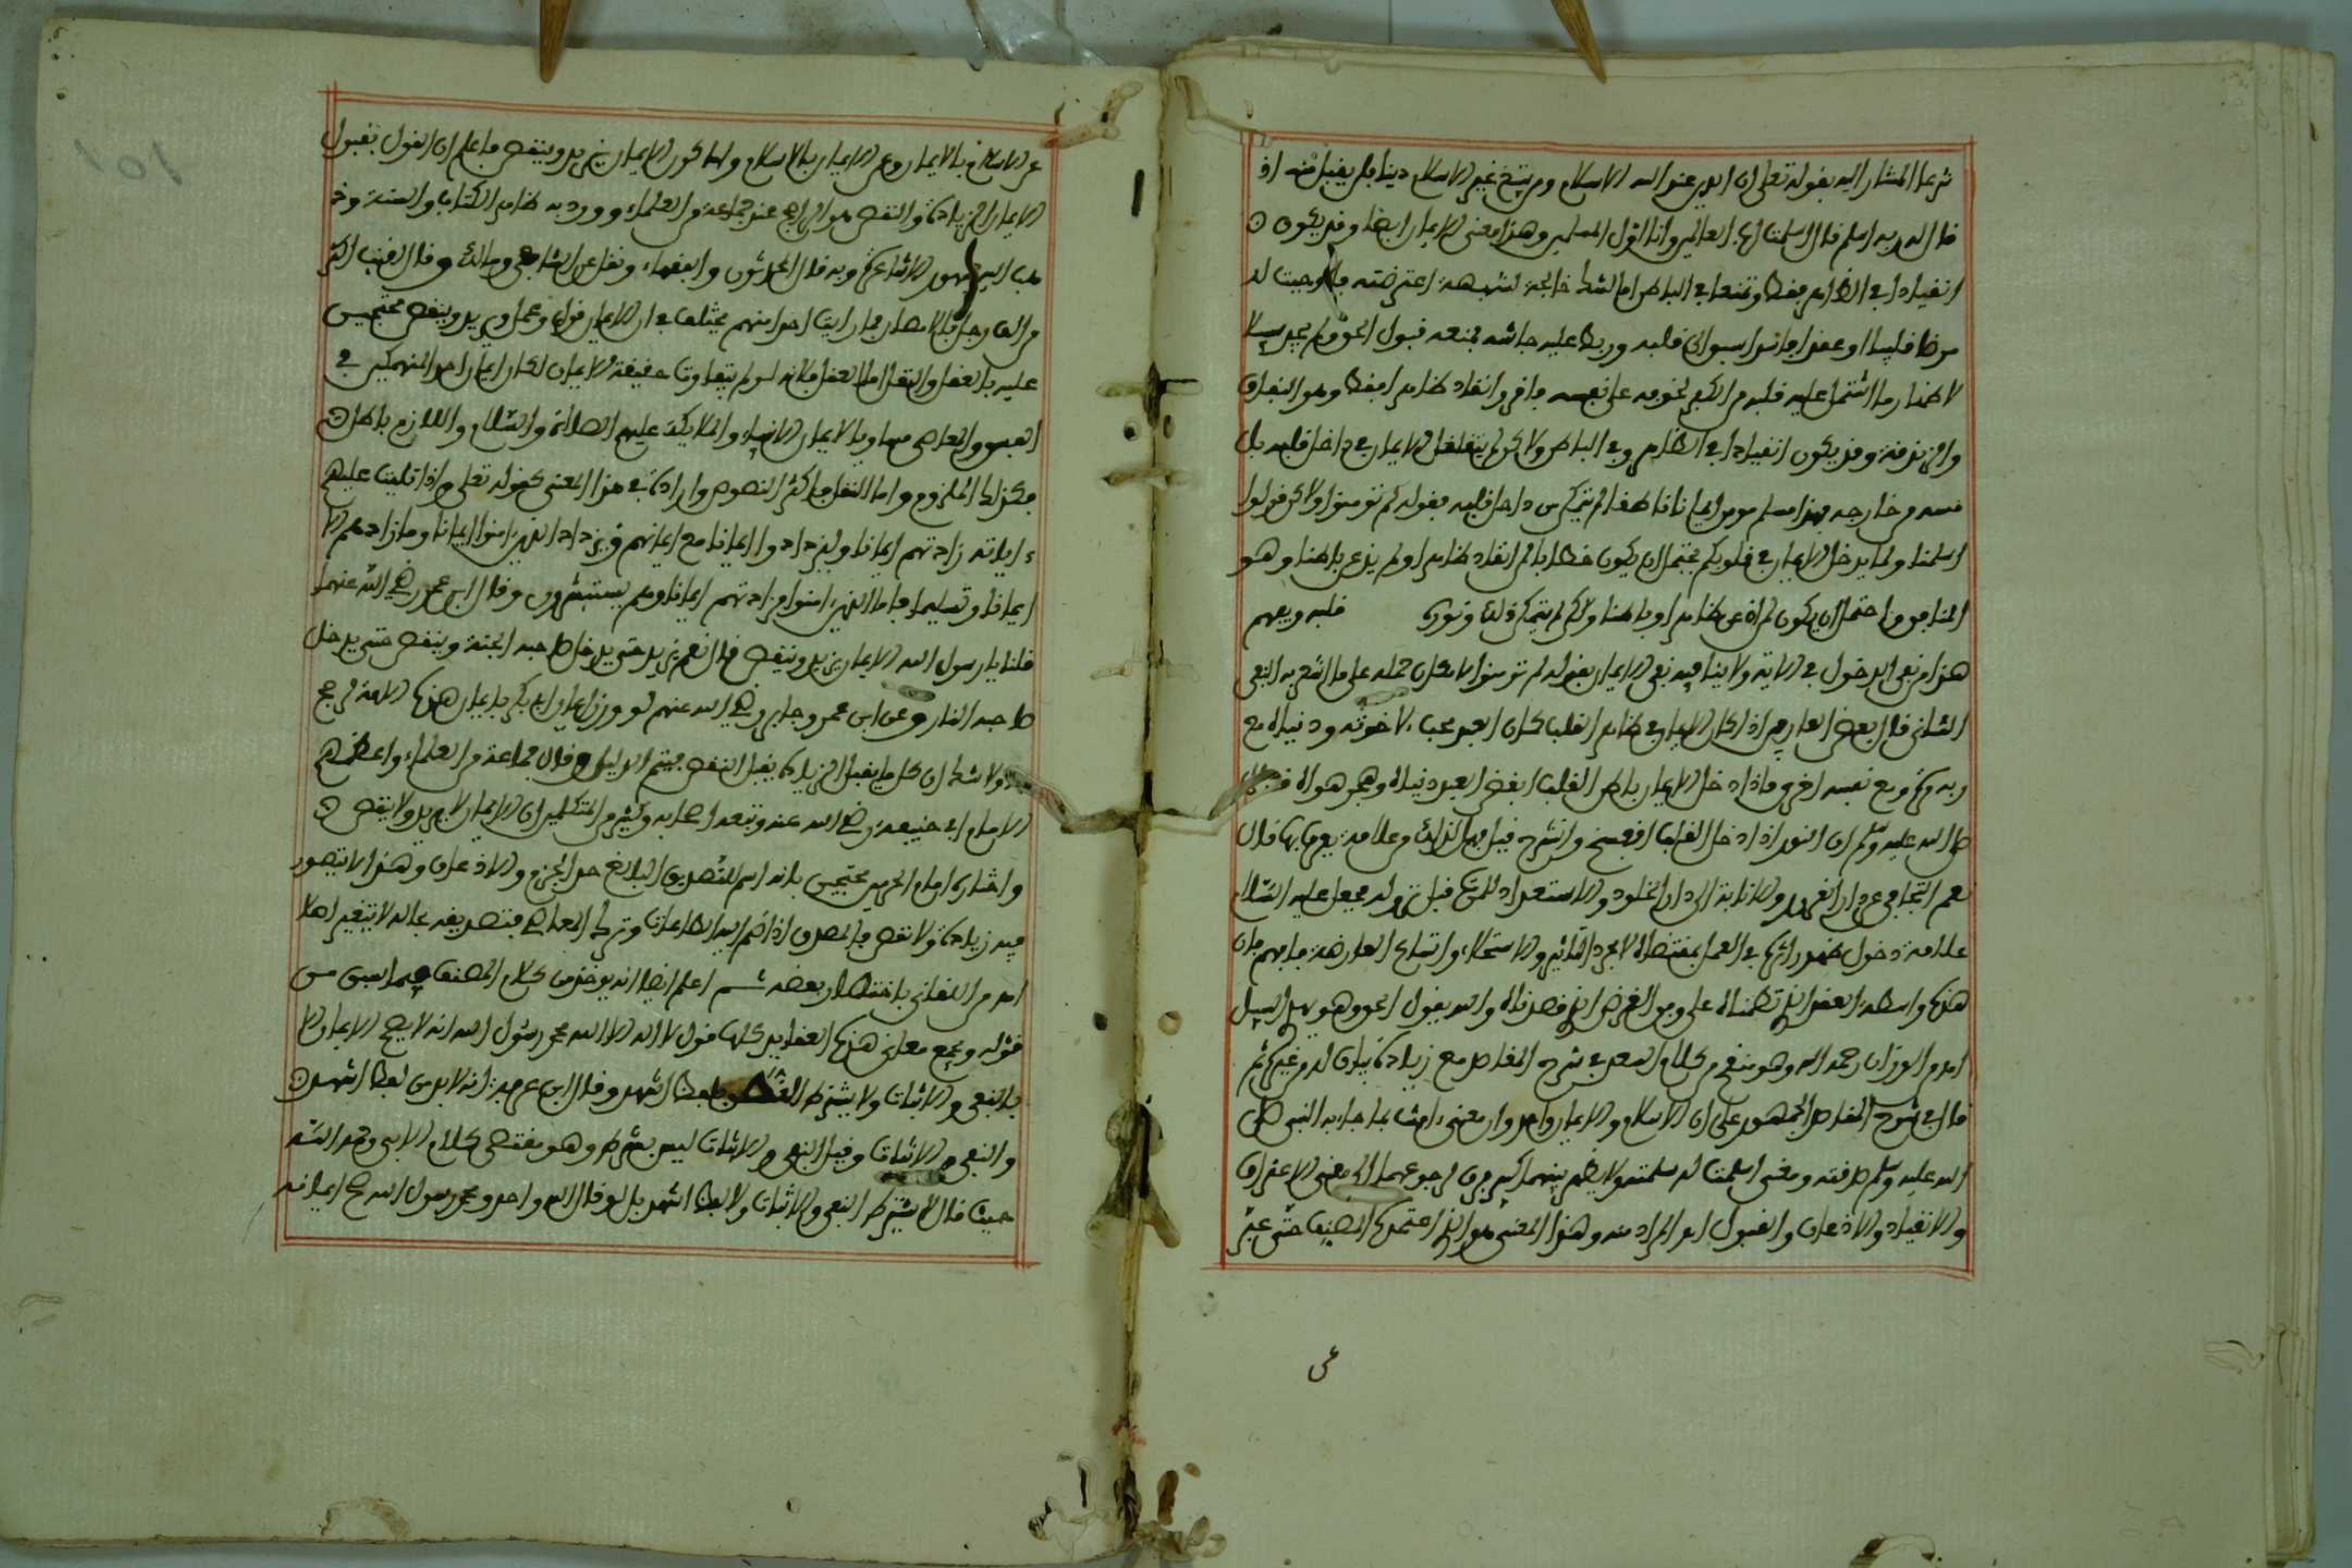 شرعا المشار اليه بقوله تعلى ان الدين عند الله الاسلام ومن يبتغ غير الاسلام دينا فلن يقبل منه اذ
قال له ربه اسلم قال اسلمت لرب العالمين وانا اول المسلمين وهذا معنى الايمان ايضا وقد يكون
انقيادا في الظاهر فقط وتمنعا في الباطن اما لشك خالجه لشبهة اعترضته فاوجبت له
مرضا قلبيا او عقدا فاسدا سبق الى قلبه وربط عليه جاشه فمنعه قبول الحق ولم يجد سبيلا
لاظهار ما اشتمل عليه قلبه من الكفر لخوفه على نفسه فاقر وانقاد ظاهرا فقط وهو النفاق
والزندقة وقد يكون انقيادا في الظاهر وفي الباطن ولاكن لم يتغلغل الايمان في داخل قلبه بل
مسه من خارجه فهذا مسلم مومن ايمانا ناقصا لم يتمكن من داخل قلبه فقوله لم تومنوا ولاكن قولوا
اسلمنا ولما يدخل الايمان في قلوبكم يحتمل ان يكون خطابا لمن انقاد ظاهرا ولم يذعن باطنا وهو
المنافق واحتمل ان يكون لمن اذعن ظاهرا وباطنا ولاكن لم يتمكن ذلك ونوره قلبه ويفهم
هذا من نفي الدخول في الاية ولا ينافيه نفي الايمان بقوله لم تومنوا لامكان حمله على ما اشعر به النفي
الثاني قال بعض العارفين اذا كان الايمان في ظاهر القلب كان العبد محبا لاخرته ودنياه مع
ربه مرة ومع نفسه اخرى فاذا دخل الايمان باطن القلب ابغض العبد دنياه وهجر هواه قال
صلى الله عليه وسلم ان النور اذا دخل القلب انفسح وانشرح قيل فهل لذلك من علامة يعرف بها قال
نعم التجافي عن دار الغرور والانابة الى دار الخلود والاستعداد للموت قبل نزوله فجعل عليه السلام
علامة دخول النور اثره في العمل بمقتضاه لا مجرد التاثير والاستحلاء واتساع العارضة فافهم فان
هذه واسطة العقد الذي نظمناه على وفق الغرض الذي قصدناه والله يقول الحق وهو يهدي السبيل
اه من الوزان رحمه الله وهو منقح من كلام السعد في شرح المقاصد مع زيادة بيان له من غيره ثم
قال في شرح المقاصد الجمهور على ان الاسلام والايمان واحد وان معنى ءامنت بما جاء به النبي صلى
الله عليه وسلم صدقته ومعنى اسلمت له سلمته ولا يظهر بينهما كبير فرق لرجوعهما الى معنى الاعتراف
والانقياد والاذعان والقبول اه المراد منه وهذا المعنى هو الذي اعتمده المصنف حتى عبر
عن
عن الاسلام بالايمان وعن الايمان بالاسلام واما كون الايمان يزيد وينقص فاعلم ان القول بقبول
الايمان الزيادة والنقص هو الراجح عند جماعة من العلماء وورد به ظاهر الكتاب والسنة وذ
هب اليه جمهور الاشاعرة وبه قال المحدثون والفقهاء ونقل عن الشافعي ومالك وقال لقيت اكثر
من الف رجل بالامصار فما رايت احدا منهم يختلف في ان الايمان قول وعمل ويزيد وينقص محتجين
عليه بالعقل والنقل اما العقل فلانه لو لم تتفاوت حقيقة الايمان لكان ايمان احد المنهمكين في
الفسق والمعاصي مساويا لايمان الانبياء والملايكة عليهم الصلاة والسلام واللازم باطل
فكذا الملزوم واما النقل فاكثر النصوص وارادة في هذا المعنى كقوله تعلى واذا تليت عليهم
ءاياته زادتهم ايمانا وليزدادوا ايمانا مع ايمانهم ويزداد الذين امنوا ايمانا وما زادهم الا
ايمانا وتسليما فاما الذين امنوا فزادتهم ايمانا وهم يستبشرون وقال ابن عمر رضي الله عنهما
قلنا يا رسول الله الايمان يزيد وينقص قال نعم يزيد حتى يدخل صاحبه الجنة وينقص حتى يدخل
صاحبه النار وعن ابن عمر وجابر رضي الله عنهم لو وزن ايمان ابي بكر بايمان هذه الامة لرجح
ولا شك ان كل ما يقبل الزيادة يقبل النقص فيتم الدليل وقال جماعة من العلماء واعظمهم
الامام ابي حنيفة رضي الله عنه وتبعه اصحابه وكثير من المتكلمين ان الايمان لا يزيد ولا ينقص
واختاره امام الحرمين محتجين بانه اسم للتصديق البالغ حد الجزم والاذعان وهذا لا يتصور
فيه زيادة ولا نقص فالمصدق اذا ضم اليه الطاعات وترك المعاصي فتصديقه بحاله لا يتغير اصلا
اه من اللقاني باختصار بعضه ثم اعلم ايضا انه يوخذ من كلام المصنف فيما سبق من
قوله ويجمع معاني هذه العقايد كلها قول لا اله الا الله محمد رسول الله انه لا يصح الايمان الا
بالنفي والاثبات ولا يشترط لفظ اشهد وقال ابن عرفة انه لا بد من لفظ اشهد
والنفي والاثبات وقيل النفي والاثبات ليس بشرط وهو مقتضى كلام الابي رحمه الله
حيث قال لا يشترط النفي والاثبات ولا لفظ اشهد بل لو قال الله واحد ومحمد رسول الله صح ايمانه